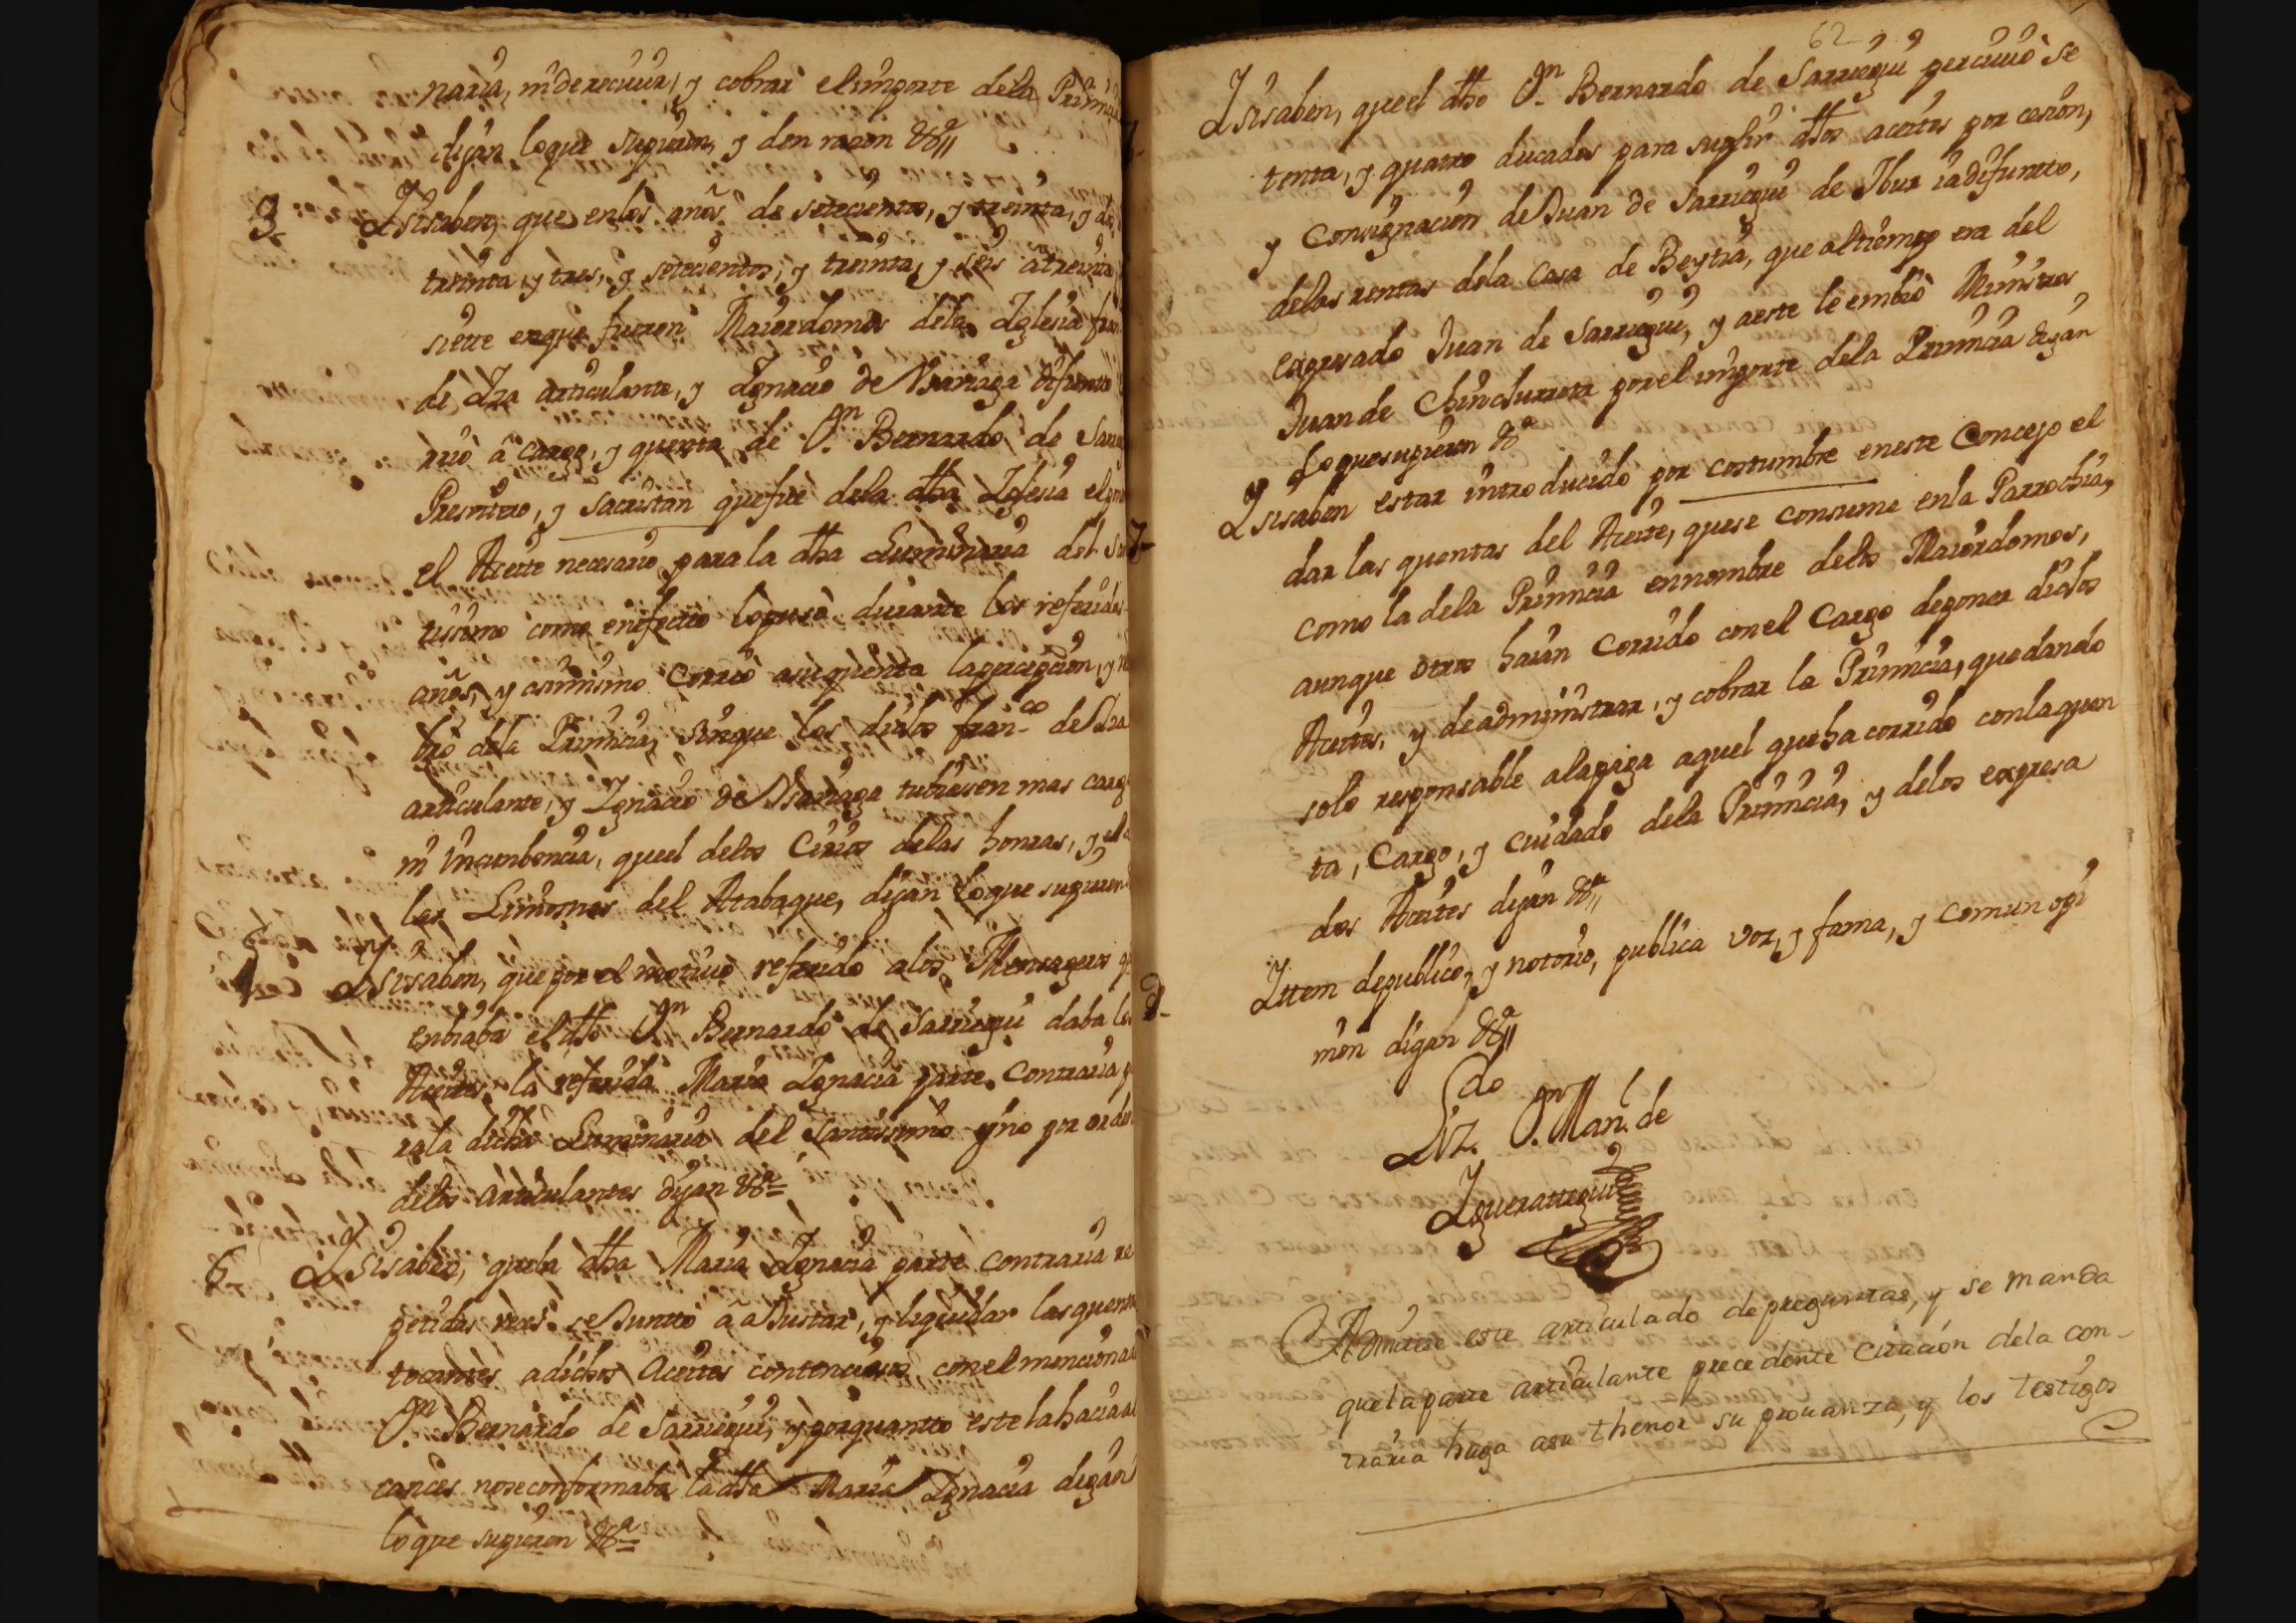 naria, ni de recivir, y cobrar el importe dela Primicia
digan loque supieren, y den razon &ª
3 Y si saben, que enlos años de setecientos, y treinta, y dos,
treinta, y tres, y setecientos, y treinta, y seis a treinta
siette enque fueron Maiordomos dela Iglesia fran
de Iza articulante, y Ignacio de difunto
rrió â cargo, y quenta de Dn Bernardo de Sarr
Presvitero, y sacristan quefue dela dha Iglesia el pon
el Aceite necesario parala dha Luminaria del San
tissimo como enefecto lopuso durante los referidos
años, y asimismo corrió asuquenta lapercepcion, y
bro dela Primicia, sinque los dichos franco de Iza
articulante, y Ignacio de tubiesen mas cargo
ni Yncunbencia, queel delos Cirios delas honras, y el
las Limosnas del Atabaque, digan loque supieren
4 Y si saben, que por el motiuo referido alos Mensageros q
enbiaba el dho Dn Bernardo de Sarriegui daba los
Aceites la referida Maria Ignacia parte Contraria p
rala dicha Luminaria del Santissimo y no por orden
delos articulantes digan &ª
5 Y si saben, quela dha Maria Ignacia parte contraria re
petidas veces se Juntto â aJustar, y liquidar las quentas
tocantes adichos Aceites contenciosos conel mencionado
Dn Bernardo de Sarriegui, y porquantto este la hacia al
cances nose conformaba la dha Maria Ignacia digan
loque supieren &ª
62
Y si saben, queel dho Dn Bernardo de Sarriegui perciuió se
tenta, y quatro ducados para suplir dhos aceites por cesion,
y Consignacion de Juan de Sarriegui de Ibur ia difuntto,
delas rentas dela Casa de Beytia, que altiempo era del
expresado Juan de Sarriegui, y aeste le embió Ministros
Juan de Chinchurreta por el importe dela Primicia digan
Loque supieren &ª
7 Y si saben estar introducido por costumbre eneste Concejo el
dar las quentas del Aceite, quese consume enla Parrochia,
como la dela Primicia ennombre delos Maiordomos,
aunque otros haian Corrido conel Cargo deponer dichos
Aceites, y deadministrar, y cobrar la Primicia, quedando
solo responsable alapaga aquel queha corrido conlaquen
ta, Cargo, y cuidado dela Primicia, y delos expresa
dos Aceites digan &ª
8 Ittem depublico, y notorio, publica voz, y fama, y comun opi
nion digan &ª
Lizdo Dn Manl de
Admitese este articulado depreguntas, y se manda
quela parte articulante precedente citacion dela con-
traria haga asu thenor su prouanza, y los testigos